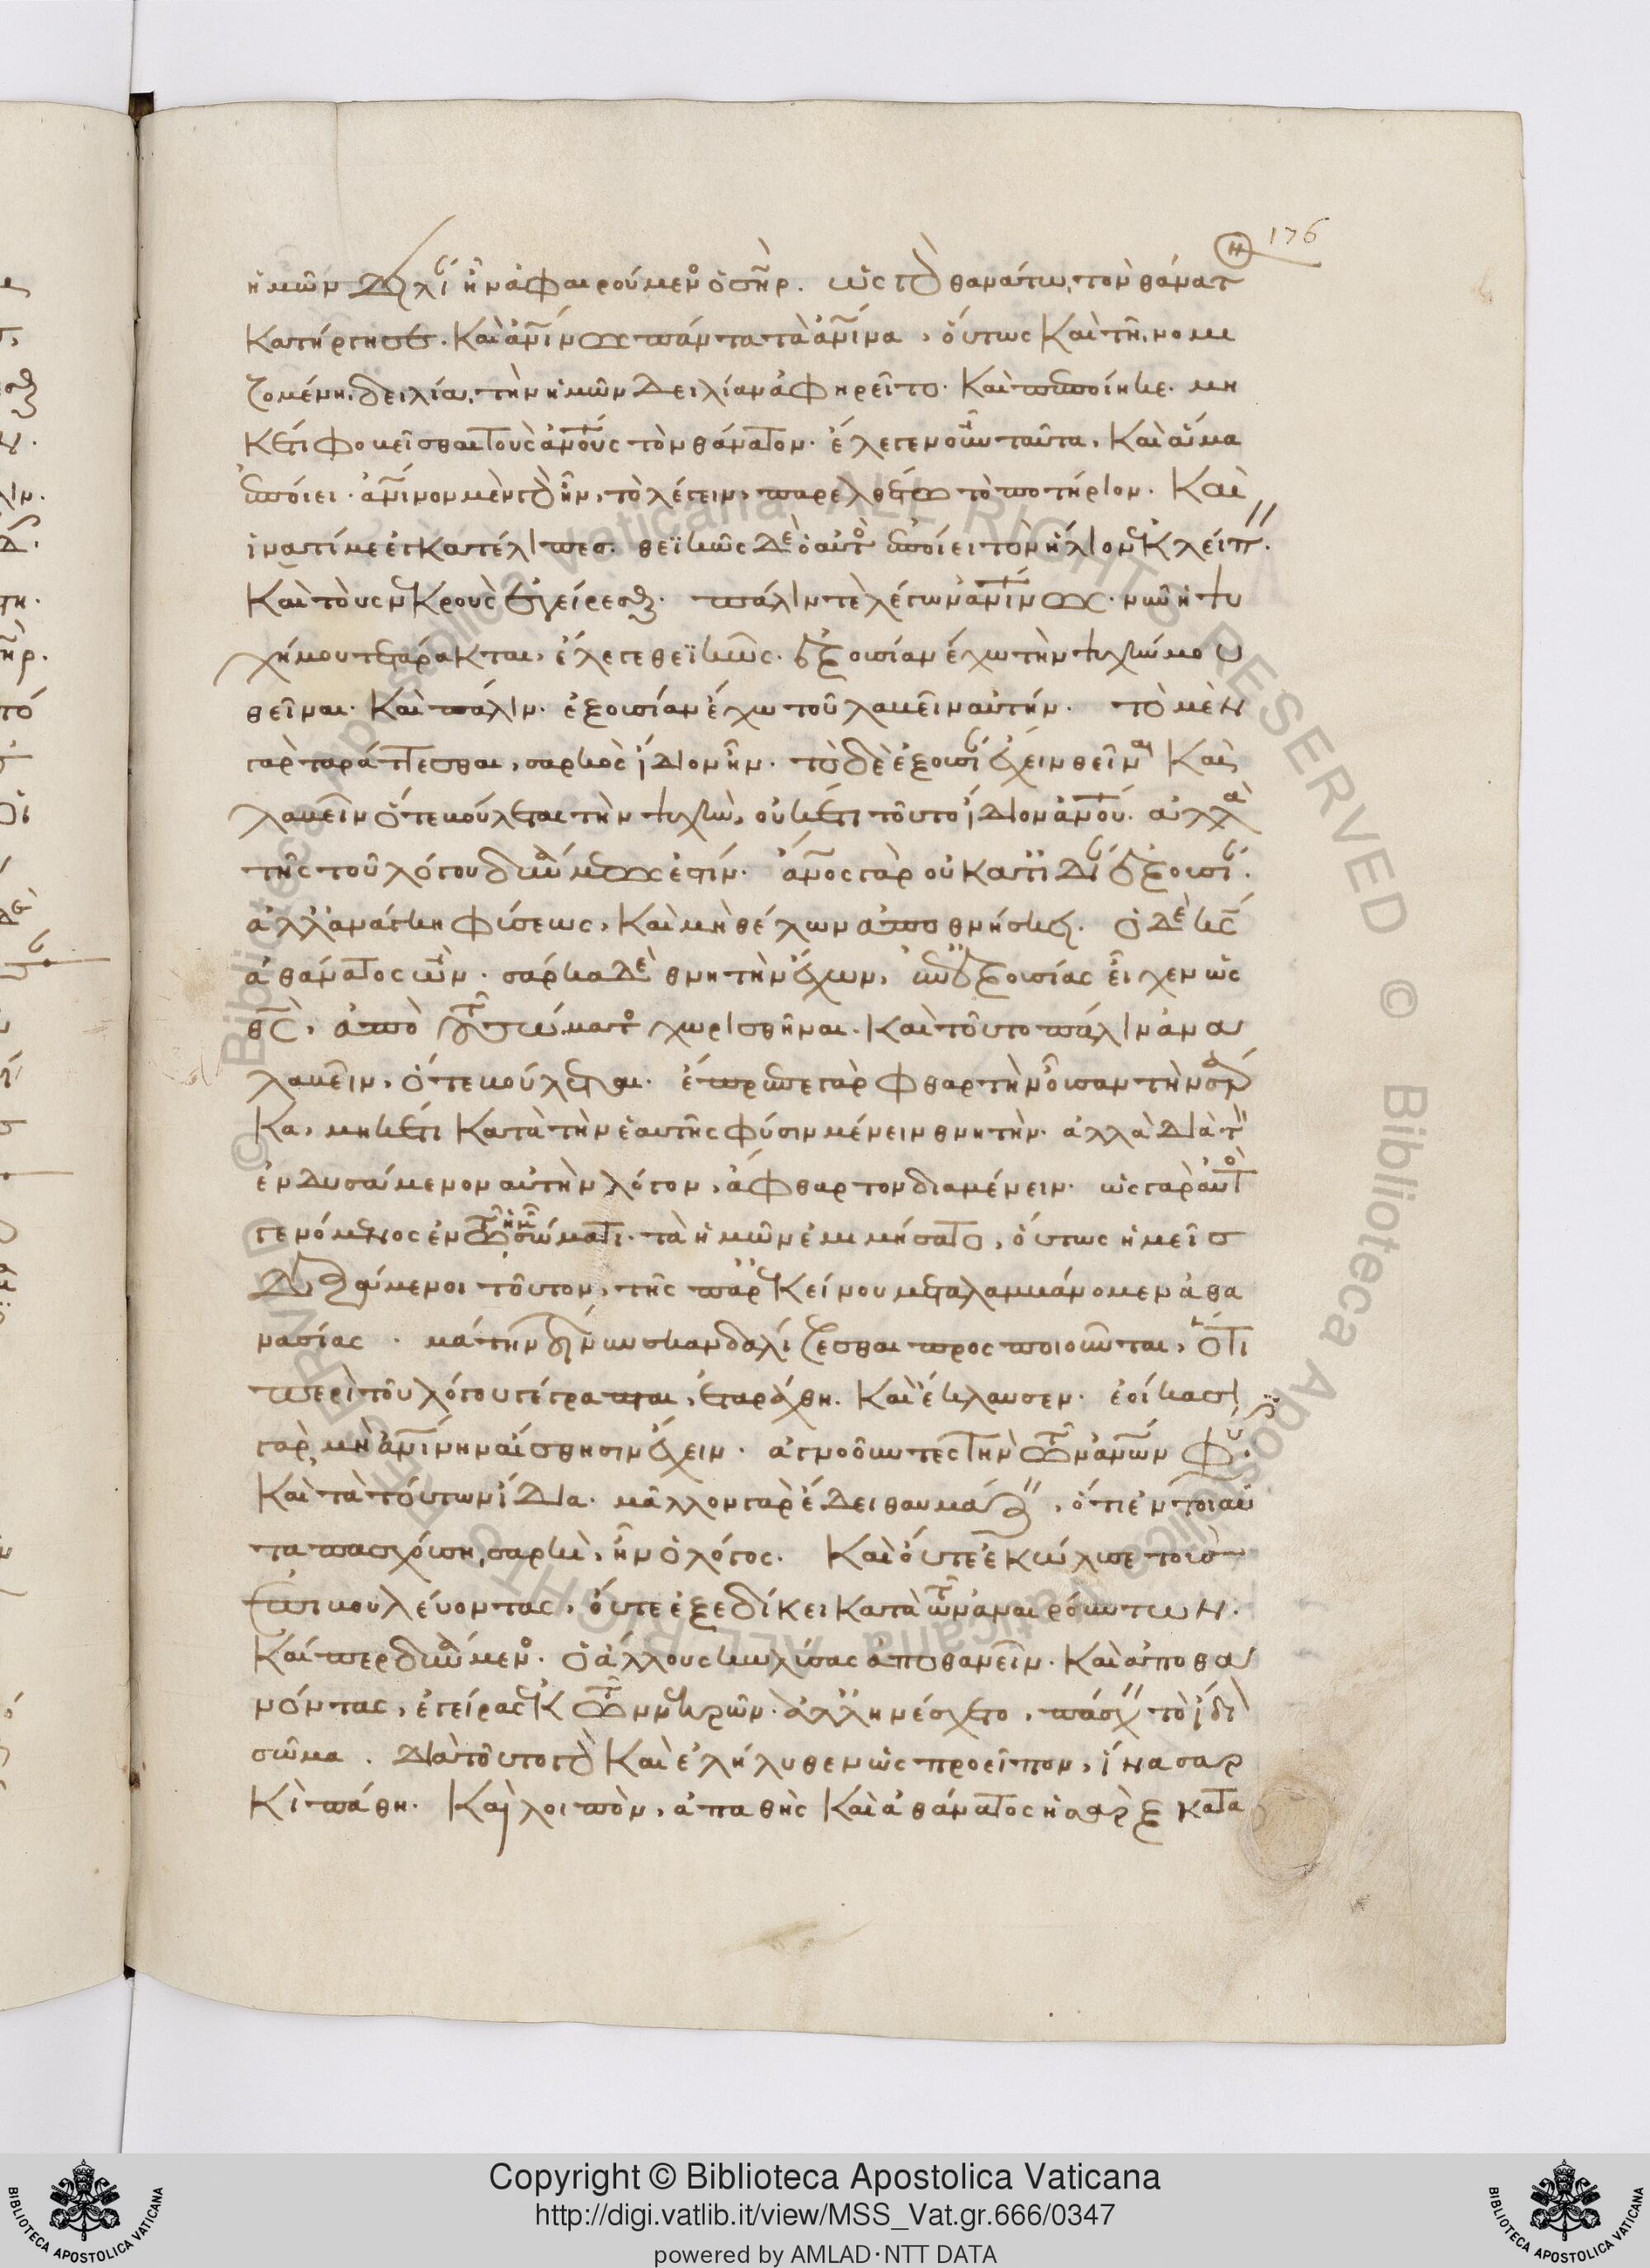 176
ἡμῶν δειλίαν ἦν ἀφαιρούμενος ὁ σ̅η̅ρ. ὡς γὰρ θανάτω, τὸν θάνατ
κατήργησε. καὶ ἀν̅ίνως πάντα τὰ ἀν̅ινα, οὕτως καὶ τῆ, νομι
ζομένη δειλία, τὴν ἡμῶν δειλίαν ἀφηρεῖτο. καὶ πεποίηκε. μη
κέτι φοβεῖσθαι τοὺς ἀν̅ους τὸν θάνατον. ἔλεγεν οὖν ταῦτα, καὶ ἅμα
ἐποίει. ἀν̅ινον μὲν γὰρ ἦν, τὸ λέγειν, παρελθέτω τὸ ποτήριον. καὶ
ἱνατί με ἐγκατέλιπες. θεϊκῶς δὲ ὁ αὐτὸς ἐποίει τὸν ἥλιον ἐκλείπειν.
καὶ τοὺς νεκροὺς ἐγείρεσθαι. πάλιν τὲ λέγων ἀν̅ίνως. νῦν ἡ ψυ
χή μου τετάρακται, ἔλεγε θεϊκῶς. ἐξουσίαν ἔχω τὴν ψυχήν μου
θεῖναι. καὶ πάλιν. ἐξουσίαν ἔχω τοῦ λαβεῖν αὐτήν. τὸ μὲν
γὰρ ταράττεσθαι, σαρκὸς ἴδιον ἦν. τὸ δὲ ἐξουσίαν ἔχειν θεῖναι καὶ
λαβεῖν ὅτε βούλεται τὴν ψυχήν, οὐκέτι τοῦτο ἴδιον ἀν̅ου. ἀλλὰ
τῆς τοῦ λόγου δυνάμεως ἐστίν. ἄν̅ος γὰρ οὐ κατιδίαν ἐξουσίαν.
ἀλλ' ἀνάγκη φύσεως, καὶ μὴ θέλων ἀποθνήσκει. ὁ δὲ κ̅ς
ἀθάνατος ὢν. σάρκα δὲ θνητὴν ἔχων, ἐπεξουσίας εἶχεν ὡς
θ̅ς, ἀπὸ τοῦ σώματος χωρισθῆναι. καὶ τοῦτο πάλιν ἀνα
λαβεῖν, ὅτε βούλεται. ἔπρεπε γὰρ φθαρτὴν οὖσαν τὴν σάρ
κα, μηκέτι κατὰ τὴν ἑαυτῆς φύσιν μένειν θνητὴν. ἀλλὰ διὰ τὸν
ἐνδυσάμενον αὐτὴν λόγον, ἄφθαρτον διαμένειν. ὡς γὰρ αὐτὸς
γενόμενος ἐν τῶ ἡμῶν σώματι. τὰ ἡμῶν ἐμιμήσατο, οὕτως ἡμεῖς
δεξάμενοι τοῦτον, τῆς παρ' ἐκείνου μεταλαμβάνομεν ἀθα
νασίας. μάτην τοίνυν σκανδαλίζεσθαι προςποιοῦνται, ὅτι
περὶ τοῦ λόγου γέγραπται, ἐταράχθη. καὶ ἔκλαυσεν. ἐοίκασι
γὰρ μὴ ἀν̅ίνην αἴσθησιν ἔχειν. ἀγνοοῦντες τὴν τῶν ἀν̅ων φύσ.
καὶ τὰ τούτων ἴδια. μᾶλλον γὰρ ἔδει θαυμάζειν, ὅτι ἐν τοιαύ
τα πασχούση σαρκὶ, ἦν ὁ λόγος. καὶ οὔτε ἐκώλυσε τοὺς
ἐπιβουλεύοντας, οὔτε ἐξεδίκει κατὰ τῶν ἀναιρούντων.
καίπερ δυνάμενος. ὁ ἄλλους κωλύσας ἀποθανεῖν. καὶ ἀποθα
νόντας, ἐγείρας ἐκ τῶν νεκρῶν. ἀλλ' ἠνέσχετο, πάσχειν τὸ ἴδιον
σῶμα. διὰ τοῦτο γὰρ καὶ ἐλήλυθεν ὡς προεῖπον, ἵνα σαρ
κὶ πάθη. καὶ λοιπὸν, ἀπαθὴς καὶ ἀθάνατος ἡ σὰρξ κατα
© Biblioteca Apostolica Vaticana ALL RIGHTS RESERVED © Biblioteca Apostolica Vaticana ALL RIGHTS RESERVED
BIBLIOTECA APOSTOLICA VATICANA
Copyright © Biblioteca Apostolica Vaticana
http://digi.vatlib.it/view/MSS_Vat.gr.666/0347
powered by AMLAD·NTT DATA
BIBLIOTECA APOSTOLICA VATICANA